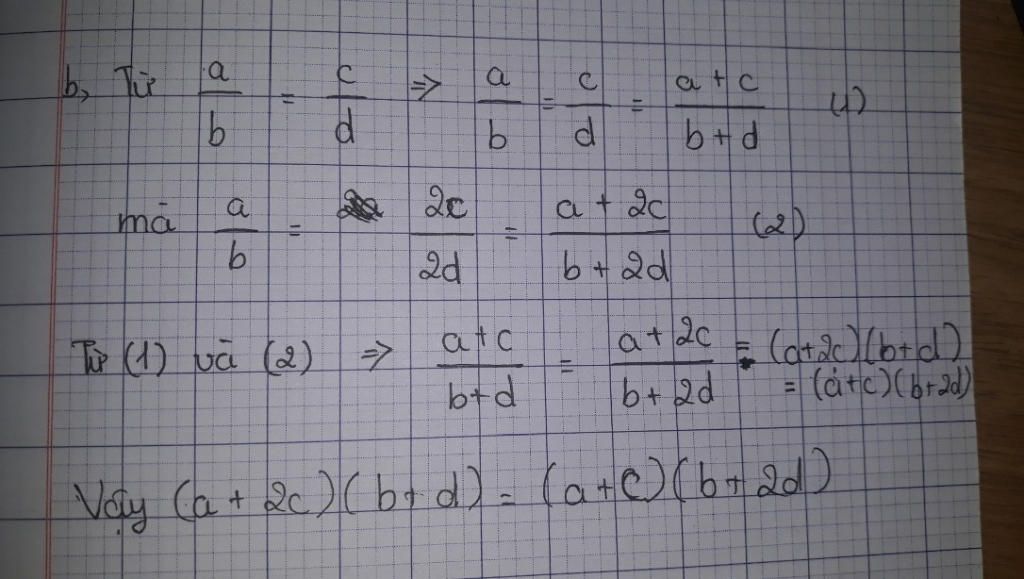 b, Từ a/b = c/d ⇒ a/b = c/d = a + c/b + d (1)
mà a/b = 2c/2d = a + 2c/b + 2d (2)
Từ (1) và (2) ⇒ a+c/b+d = a + 2c/b + 2d = (a+2c)(b+d)
= (a+c)(b+2d)
Vậy (a + 2c)(b + d) = (a+c)(b+2d)